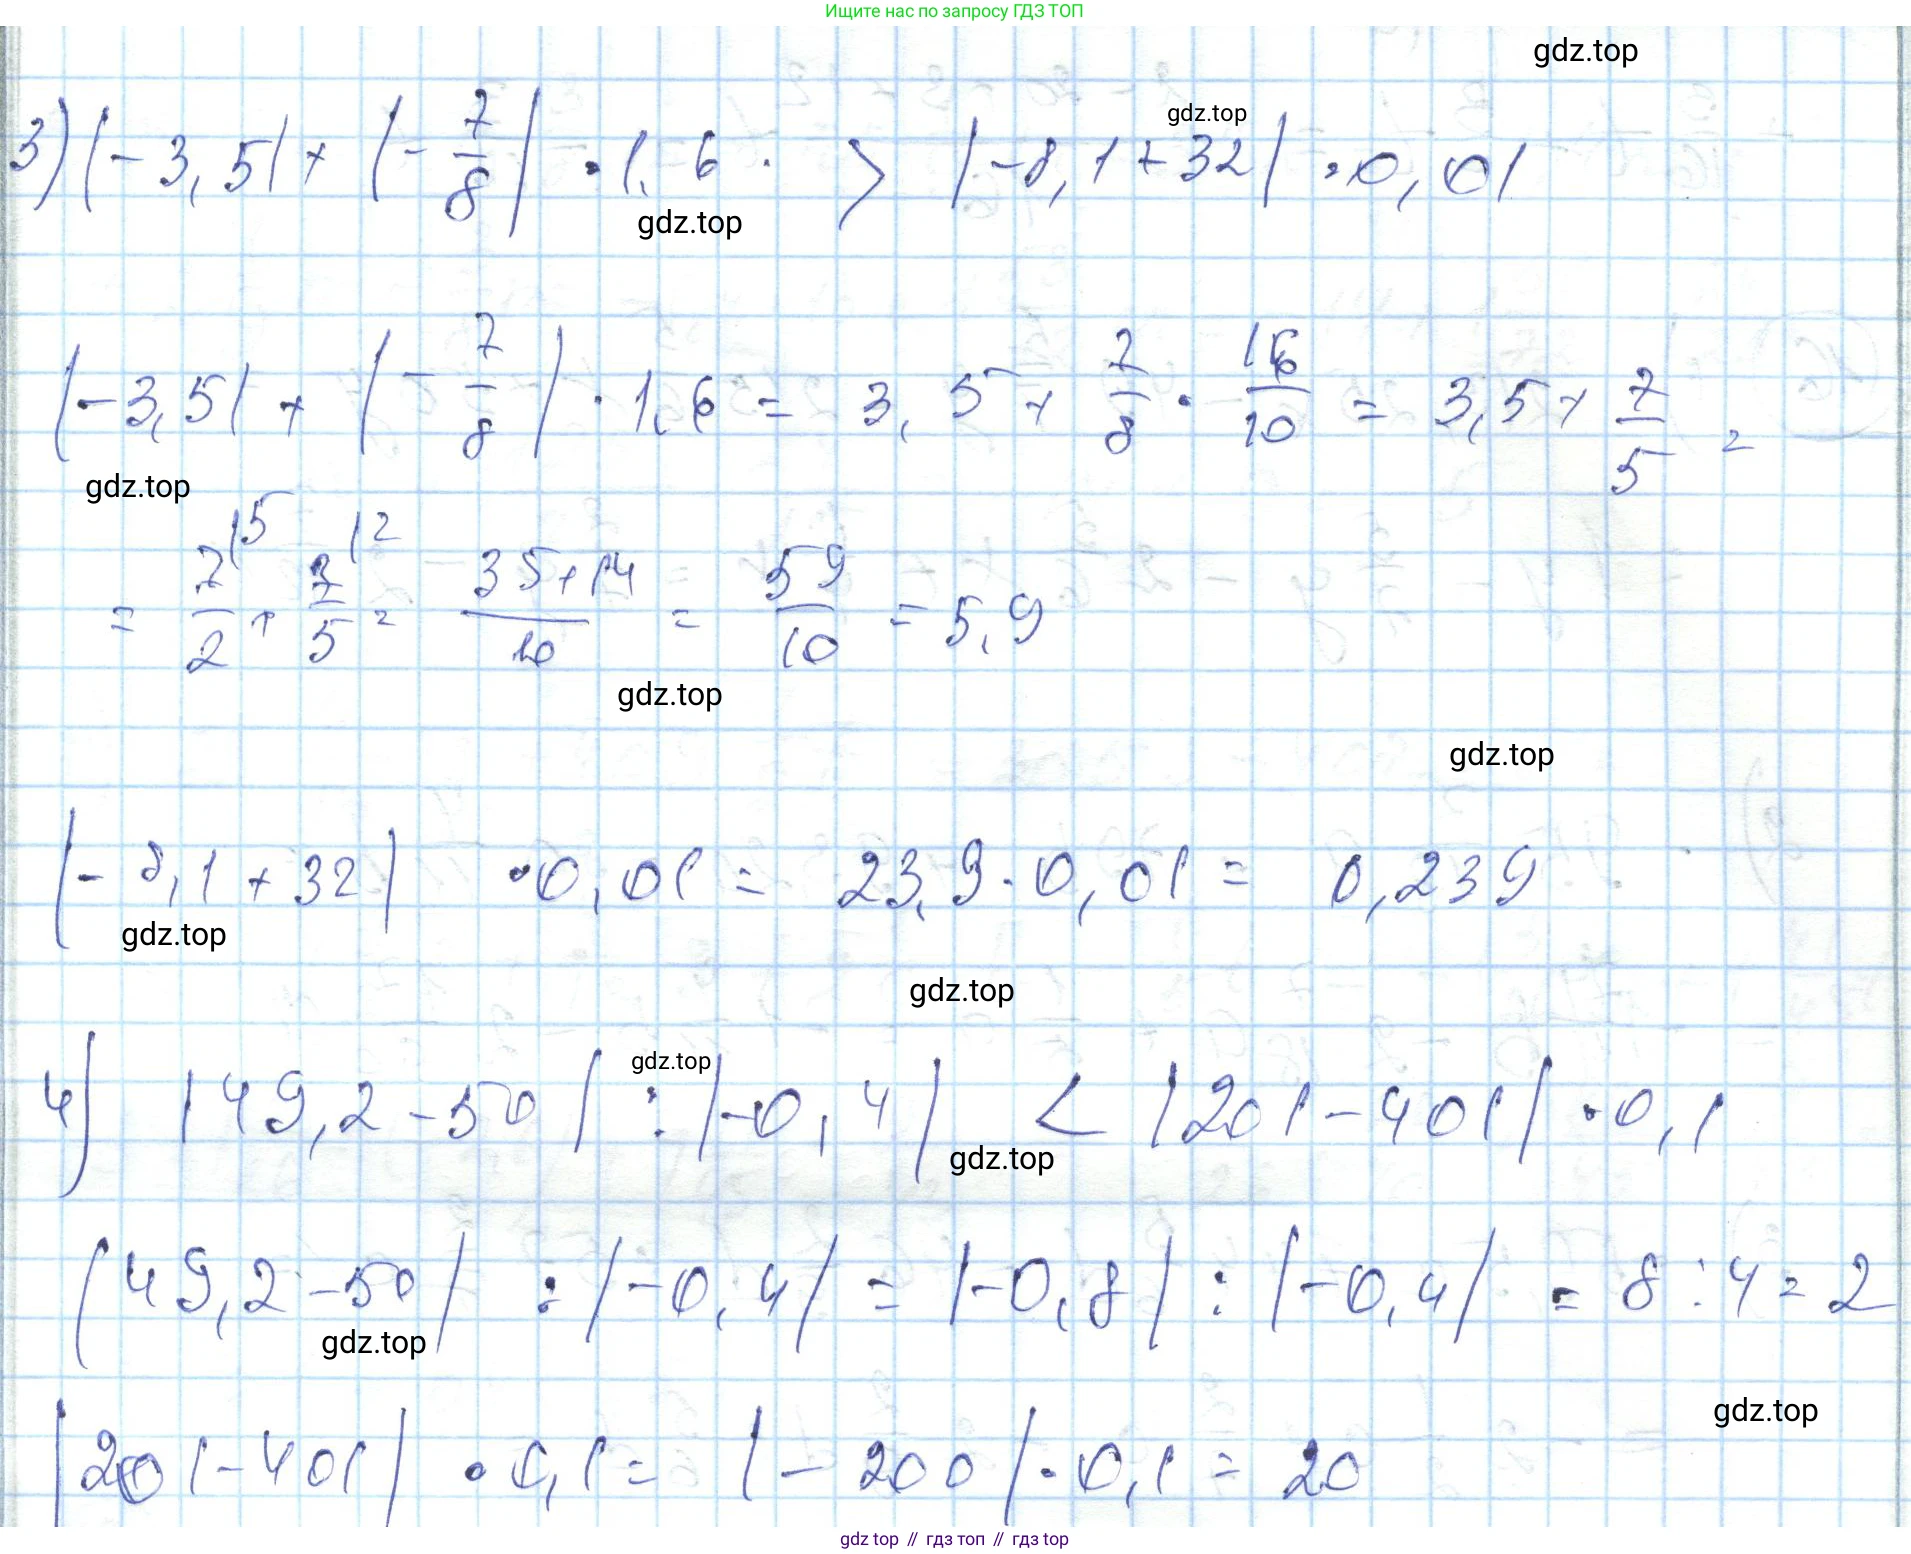 Ищите нас по запросу ГДЗ ТОП
gdz.top
gdz.top
3) |-3,5| + |-7/8| · 1,6 · > |-8,1 + 32| · 0,01
gdz.top
|-3,5| + |-7/8| · 1,6 = 3,5 + 7/8 · 16/10 = 3,5 + 7/5 =
gdz.top
= 7/2 |5 + 7/5 |2 = 35+14/10 = 59/10 = 5,9
gdz.top
gdz.top
|-8,1 + 32| · 0,01 = 23,9 · 0,01 = 0,239
gdz.top
gdz.top
gdz.top
4) |49,2 - 50| : |-0,4| < |201 - 401| · 0,1
gdz.top
|49,2 - 50| : |-0,4| = |-0,8| : |-0,4| = 8 : 4 = 2
gdz.top
gdz.top
|201 - 401| · 0,1 = |-200| · 0,1 = 20
gdz top // гдз топ // гдз top